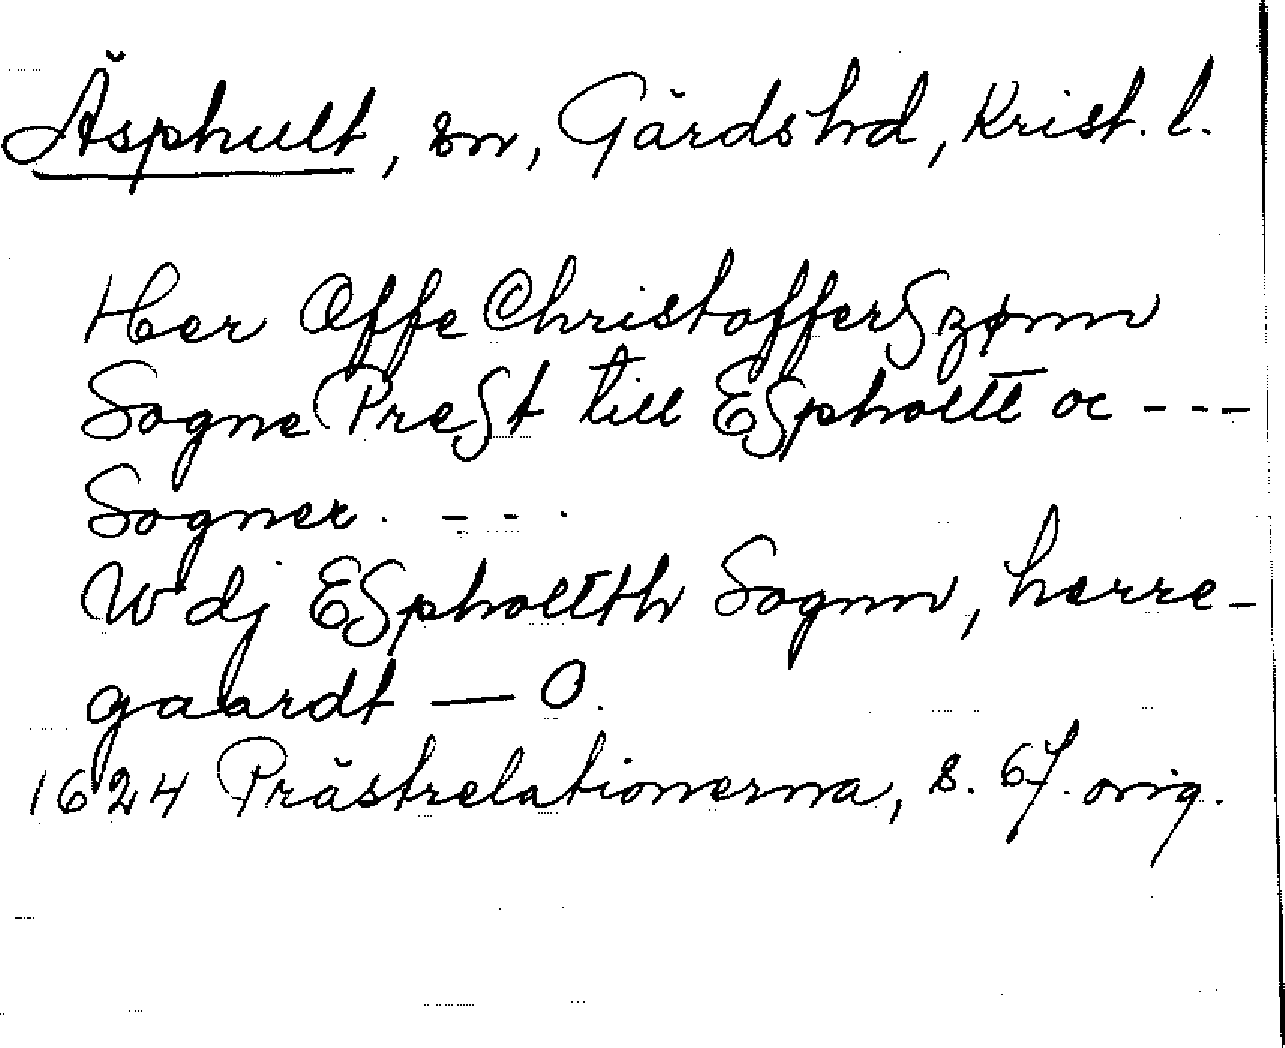 Äsphult, sn, Gärds hd, Krist. l.
Her Offe Christofferszønn
Sogne Prest till Espholtt oc ---
Sogner. - - .
W dj Esphollth Sognn, herre-
gaardt — O.
1624 Prästrelationerna, s. 67. orig.